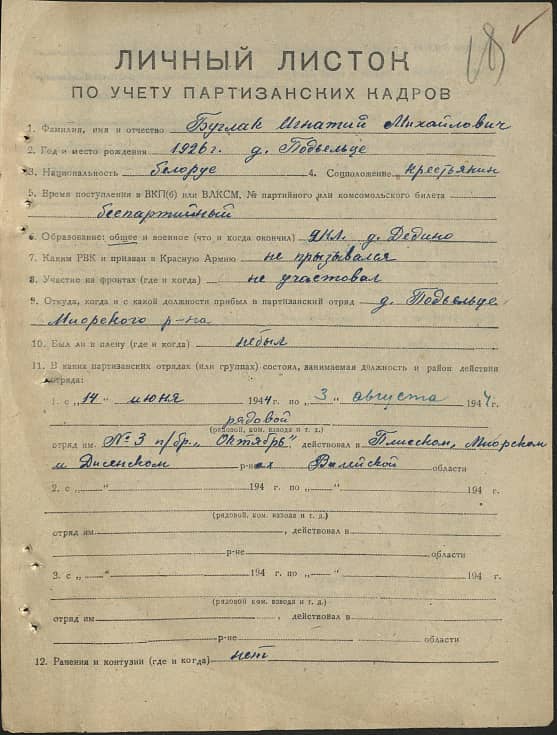 18
ЛИЧНЫЙ ЛИСТОК
ПО УЧЕТУ ПАРТИЗАНСКИХ КАДРОВ
1. Фамилия, имя и отчество Буглак Игнатий Михайлович
2. Год и место рождения 1926 г. д. Подъельце
3. Национальность белорус 4. Соцположение крестьянин
5. Время поступления в ВКП(б) или ВЛКСМ, № партийного или комсомольского билета
беспартийный
6. Образование: общее и военное (что и когда окончил) 2 кл. д. Дедино
7. Каким РВК и призван в Красную Армию не призывался
8. Участие на фронтах (где и когда) не участвовал
9. Откуда, когда и с какой должности прибыл в партизанский отряд д. Подъельце
Миорского р-на
10. Был ли в плену (где и когда) небыл
11. В каких партизанских отрядах (или группах) состоял, занимаемая должность и район действия
отряда:
1. с „14" июня 1944 г. по „3" августа 1944 г.
рядовой
(рядовой, ком. взвода и т. д.)
отряд им. № 3 п/бр. „Октябрь", действовал в Плисском, Миорском
и Дисенском р-нах Вилейской области
2. с „ " 194 г. по „ " 194 г.
(рядовой, ком. взвода и т. д.)
отряд им. , действовал в
р-не области
3. с „ " 194 г. по „ " 194 г.
(рядовой ком. взвода и т. д.)
отряд им , действовал в
р-не области
12. Ранения и контузии (где и когда) нет